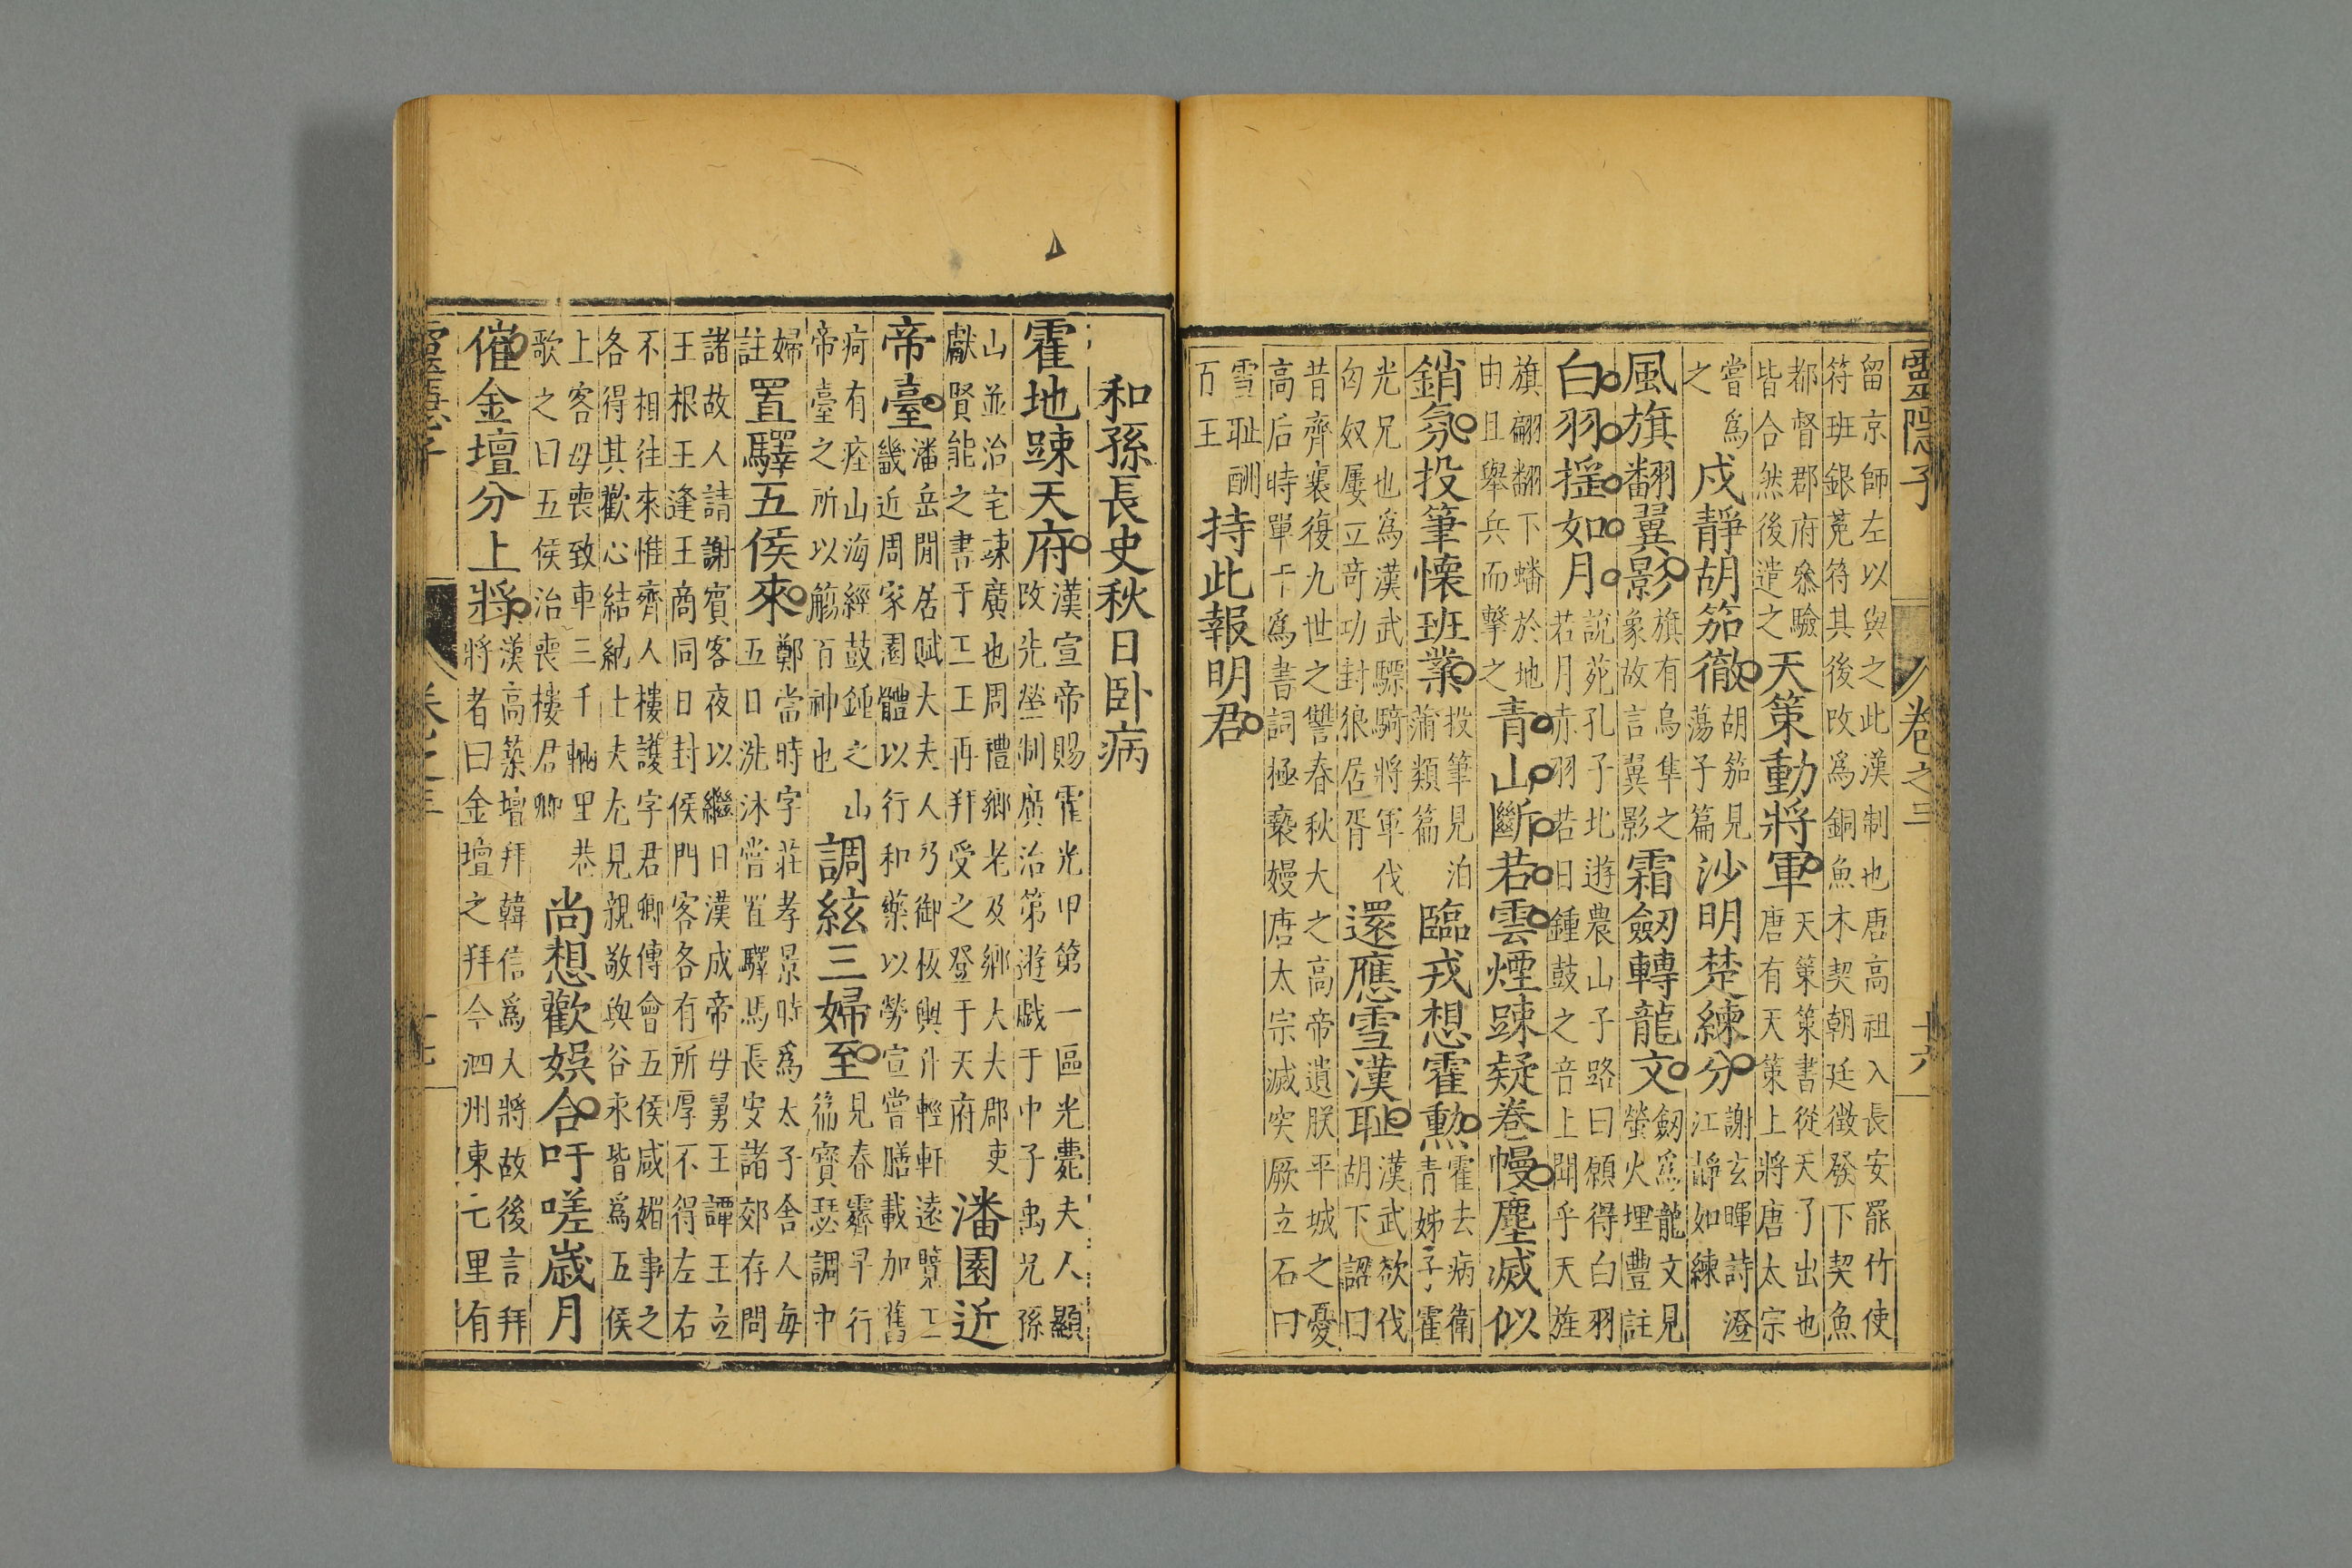 靈隱子 卷之三 十六
留京師左以與之此漢制也唐高祖入長安罷竹使
符班銀菟符其後改爲銅魚木契朝廷徵發下契魚
都督郡府叅驗
皆合然後遣之
天策動將軍
天策策書從天了出也
唐有天策上將唐太宗
嘗爲
之
戍靜胡笳徹
胡笳見
蕩子篇
沙明楚練分
謝玄暉詩澄
江靜如練
風旗翻翼影
旗有鳥隼之
象故言翼影
霜劒轉龍文
劒爲龍文見
螢火埋豐註
白羽揺如月
說苑孔子北遊農山子路曰願得白羽
若月赤羽若日鍾鼓之音上聞乎天旌
旗翩翻下蟠於地
由且舉兵而擊之
青山斷若雲煙踈疑卷幔塵滅似
銷氛投筆懷班業
投筆見泊
蒲類篇
臨戎想霍勲
霍去病衛
青姊子霍
光兄也爲漢武驃騎將軍伐
匈奴屢立奇功封狼居胥
還應雪漢耻
漢武欲伐
胡下詔曰
昔齊襄復九世之讐春秋大之高帝遺朕平城之憂
高后時單于爲書詞極褻嫚唐太宗滅突厥立石曰
雪耻酬
百王
持此報明君
和孫長史秋日卧病
霍地踈天府
漢宣帝賜霍光甲第一區光薨夫人顯
改光塋制廣治第遊戲于巾子禹兄孫
山並治宅踈廣也周禮鄉老及鄉大夫郡吏
獻賢能之書于王王再拜受之登于天府
潘園近
帝臺
潘岳閒居賦大夫人乃御板輿升輕軒遠覽王
畿近周家園體以行和藥以勞宣嘗膳載加舊
痾有痊山海經鼓鍾之山
帝臺之所以觴百神也
調絃三婦至
見春霽早行
篇寳瑟調中
婦
註
置驛五侯來
鄭當時字莊孝景時爲太子舍人每
五日洗沐嘗置驛馬長安諸郊存問
諸故人請謝賓客夜以繼日漢成帝母舅王譚王立
王根王逢王商同日封侯門客各有所厚不得左右
不相往來惟齊人樓護字君卿傳會五侯咸媚事之
各得其歡心結紈士夫尢見親敬與谷永皆爲五侯
上客母喪致車三千輛里巷
歌之曰五侯治喪樓君卿
尚想歡娯合吁嗟歲月
催金壇分上將
漢高築壇拜韓信爲大將故後言拜
將者曰金壇之拜今泗州東七里有
靈隱子 卷之三